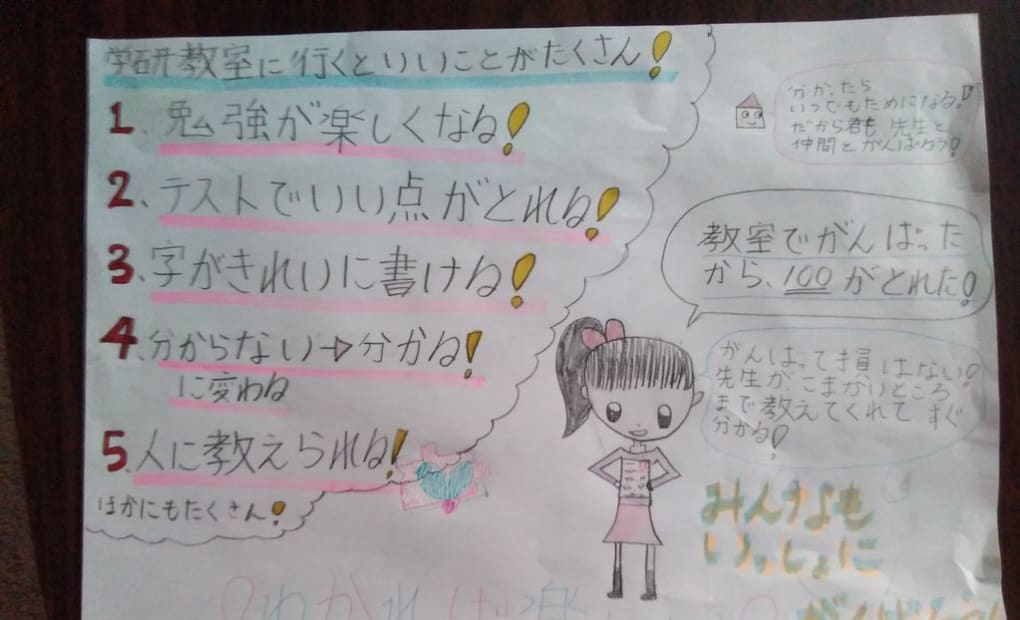 学研教室に行くといいことがたくさん!
1. 勉強が楽しくなる!
2、テストでいい点がとれる!
3、字がきれいに書ける!
4、分からない→分かる!
に変わる
5、人に教えられる!
ほかにもたくさん!
分かったら
いつでもためになる!
だから君も先生と
仲間とがんばろう!
教室でがんばった
から、100がとれた!
がんばって損はない!
先生がこまかいところ
まで教えてくれてすぐ
分かる!
みんなも
いっしょに
わかれば楽